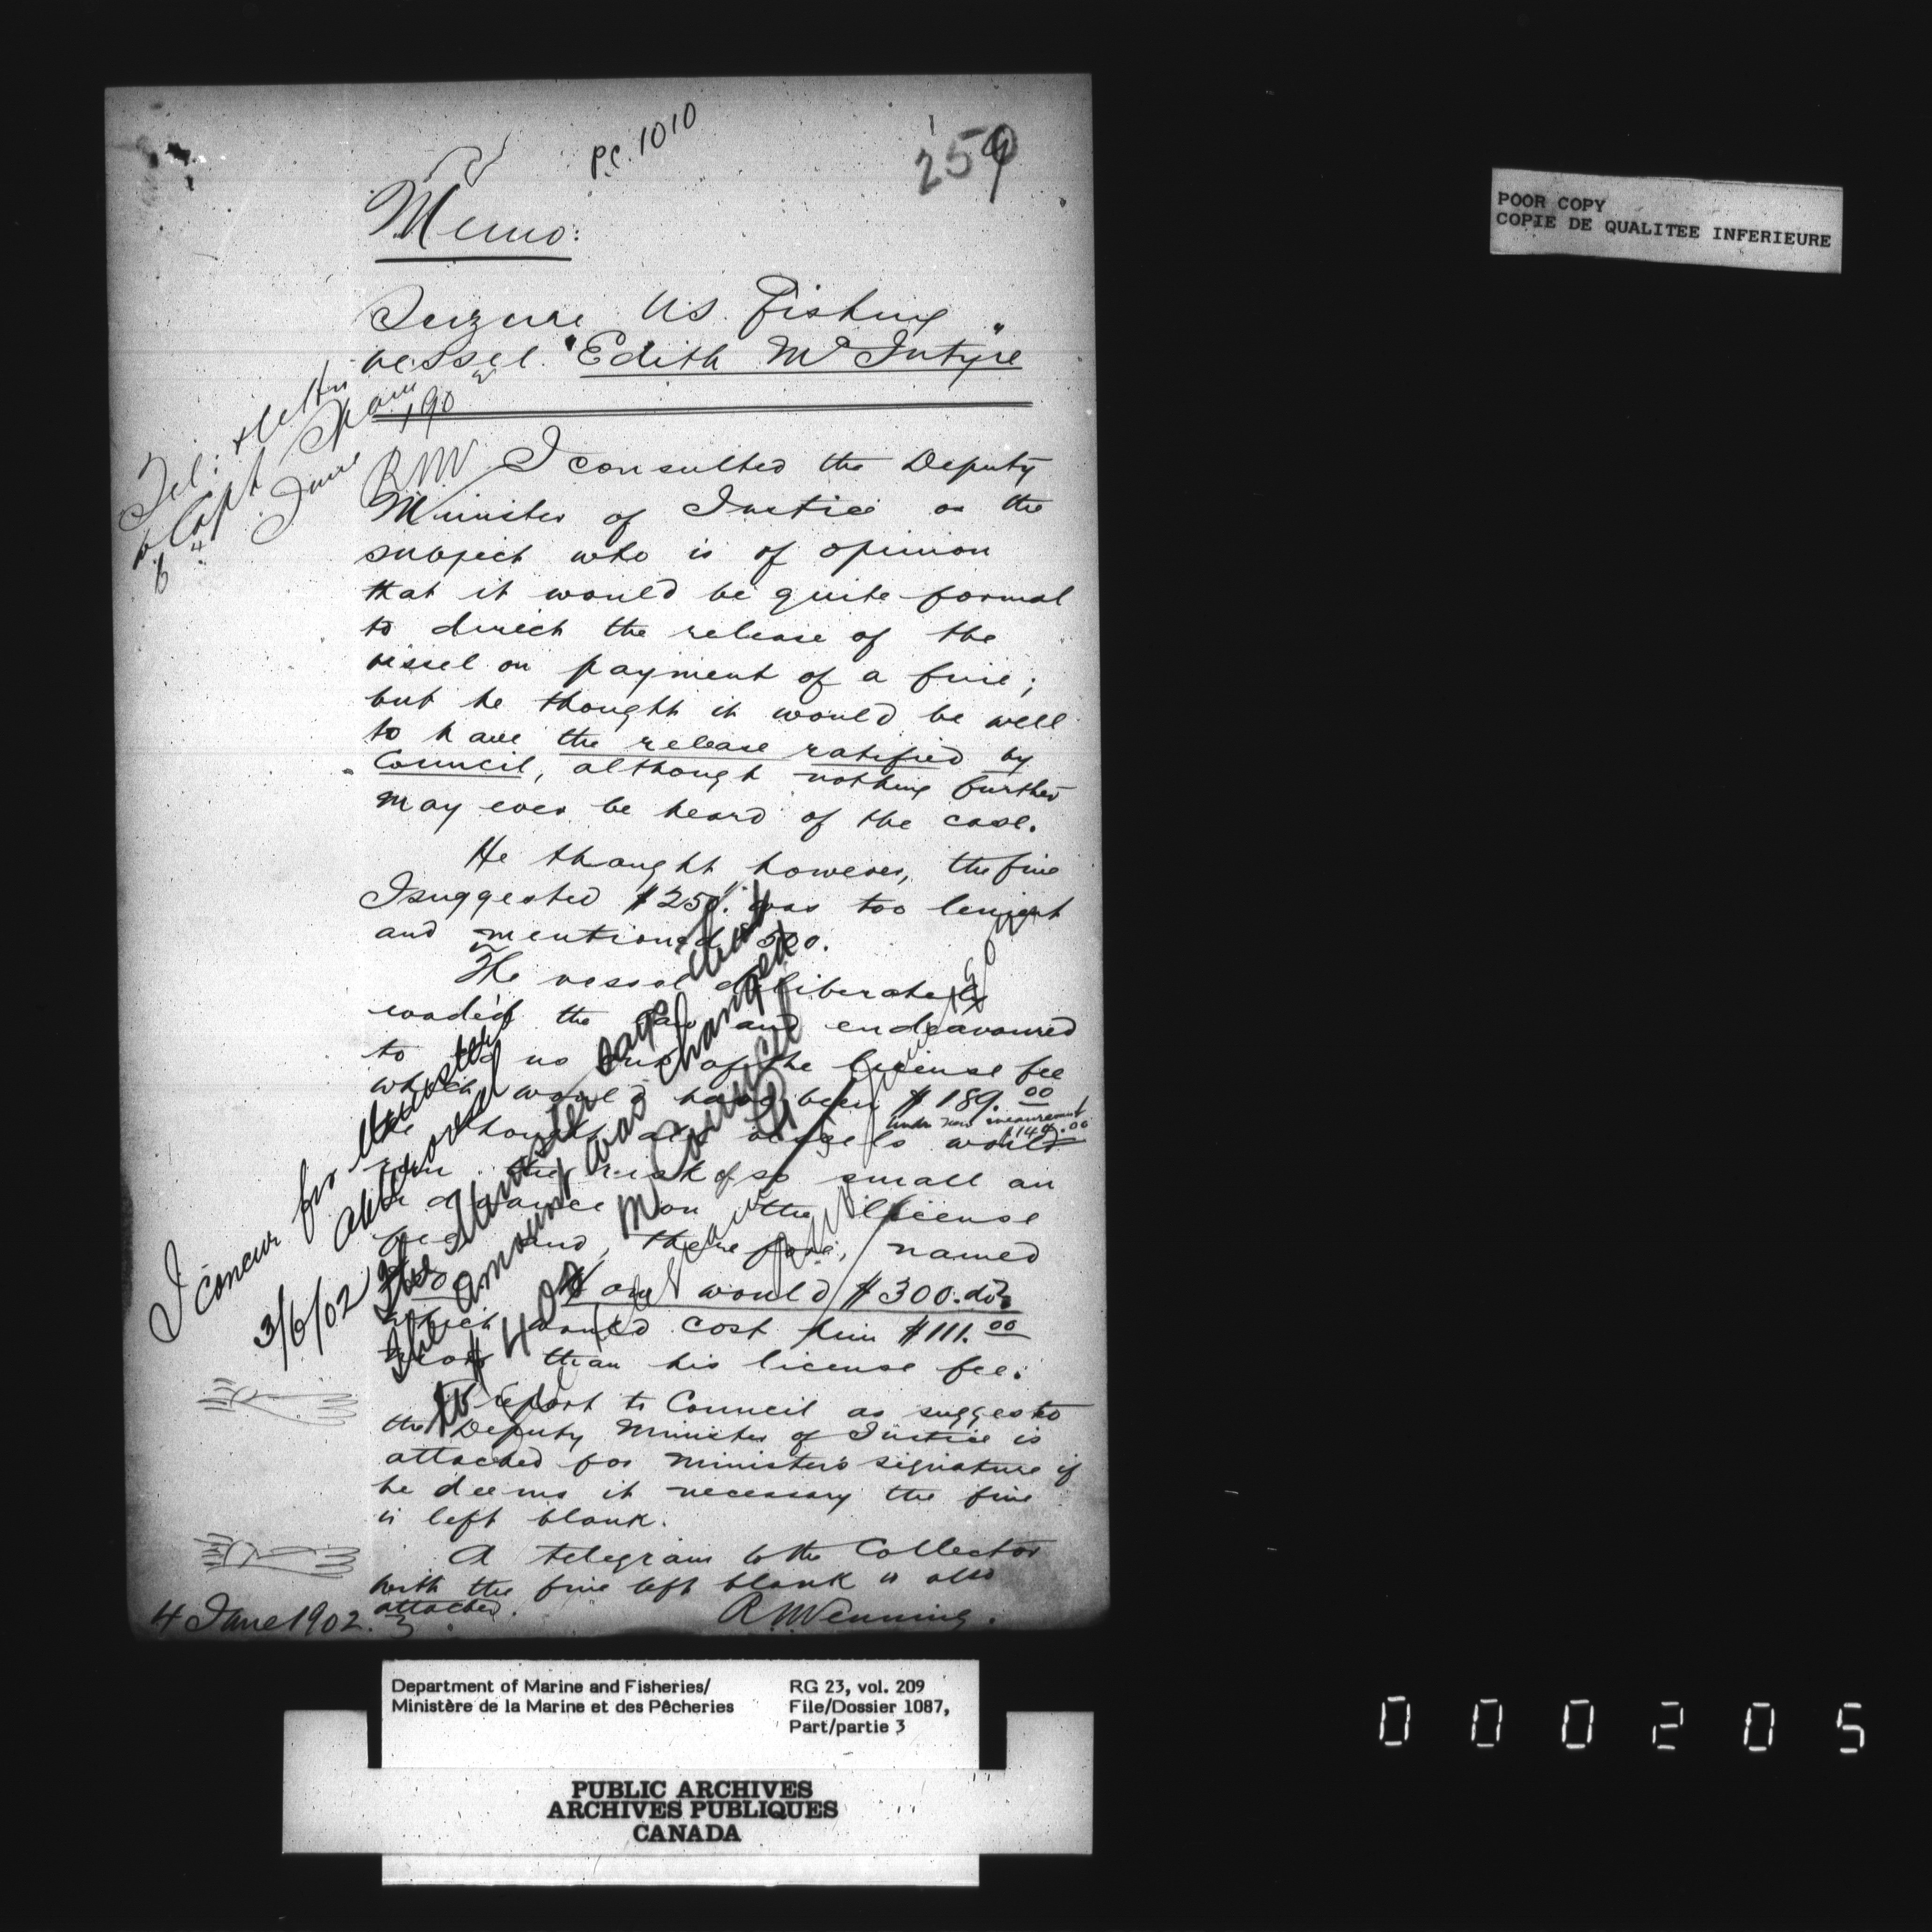 P.C. 1010
259
Memo:
Seizure U.S. Fishing
vessel. "Edith McIntyre"
Tel: & letter
to Capt Spain
4 June 1902
RNV I consulted the Deputy
Minister of Justice on the
subject who is of opinion
that it would be quite formal
to direct the release of the
vessel on payment of a fine;
but he thought it would be well
to have the release ratified by
Council, although nothing further
may ever be heard of the case.
He thought, however, the fine
I suggested $250. was too lenient
and mentioned 500.
The vessel deliberately
evaded the law and endeavoured
to us out of the license fee
which would have been $189.00
under new measurement
$140.00
He thought all vessels would
run the risk of so small an
advance on the license
fee and, therefore, named
$400 would $300. do?
which would cost him $111.00
more than his license fee.
Report to Council as suggested
the Deputy Minister of Justice is
attached for Minister's signature if
he deems it necessary the fine
is left blank.
A telegram to the Collector
with the fine left blank is also
attached.
R N Venning.
4 June 1902.
I concur for Minister's
approval
3/6/02
The Minister says that
the amount was changed
to $400 in Council
POOR COPY
COPIE DE QUALITEE INFERIEURE
Department of Marine and Fisheries/
Ministère de la Marine et des Pêcheries
RG 23, vol. 209
File/Dossier 1087,
Part/partie 3
PUBLIC ARCHIVES
ARCHIVES PUBLIQUES
CANADA
000205